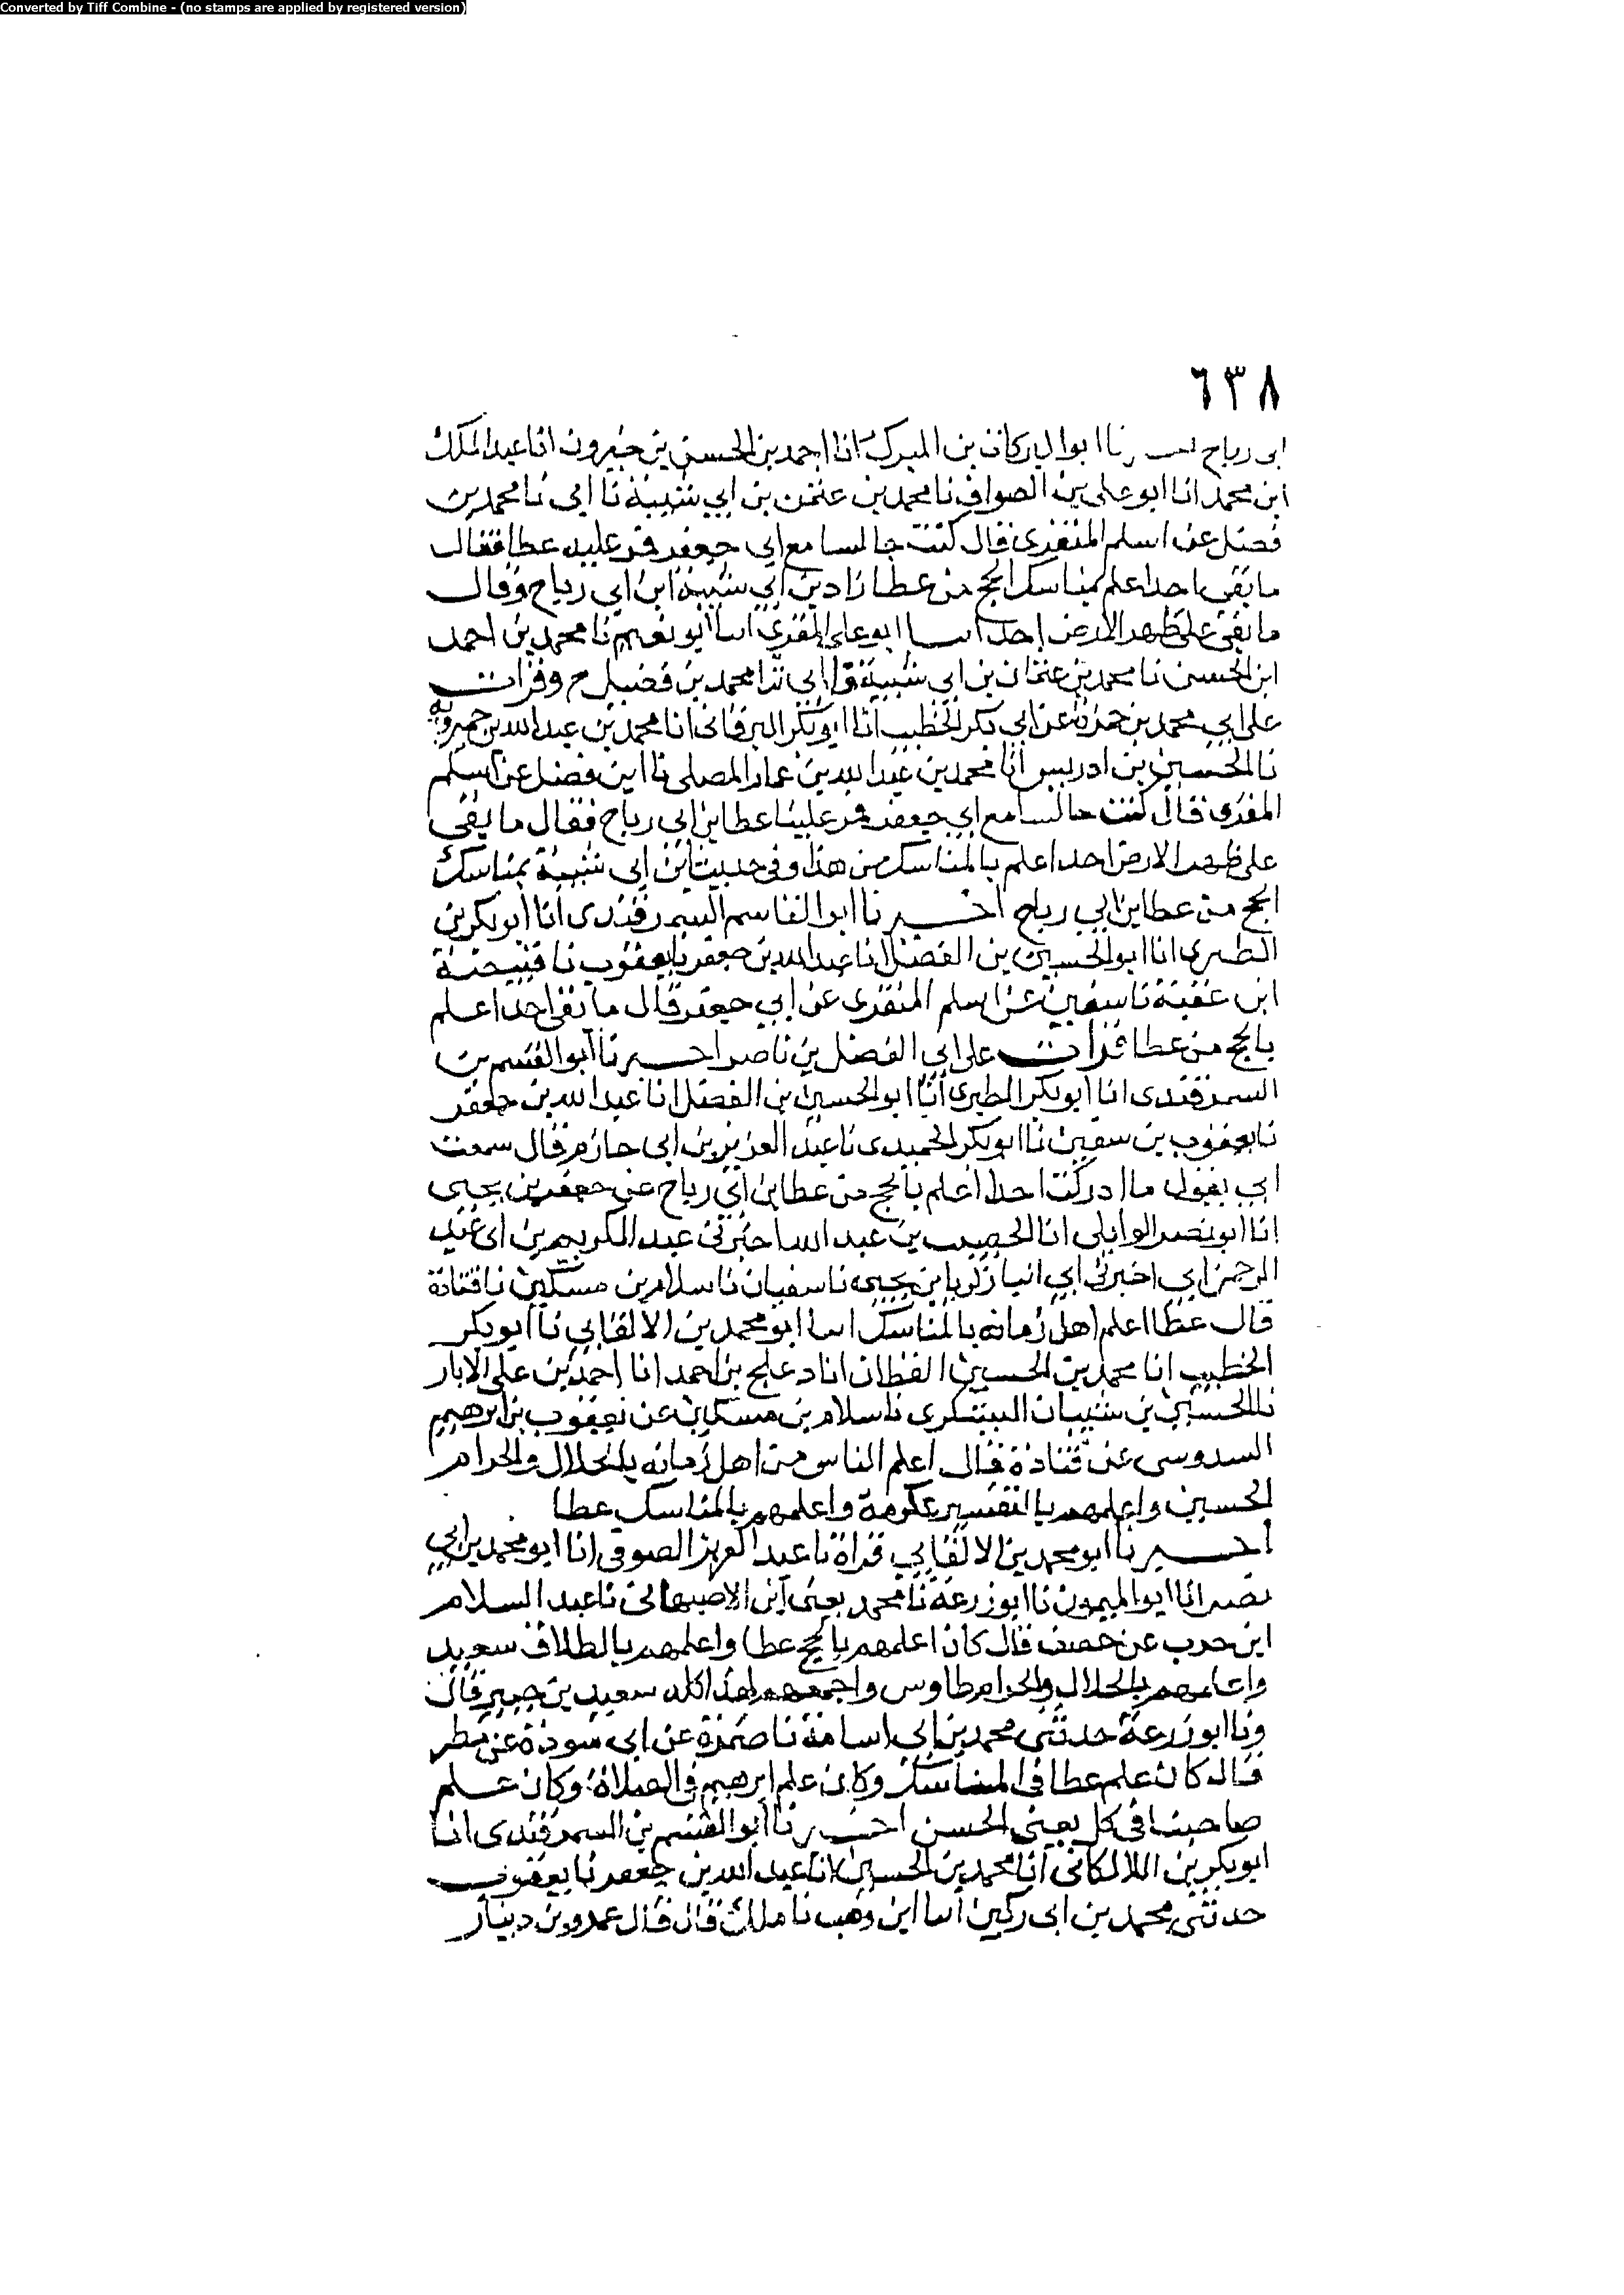 Converted by Tiff Combine - (no stamps are applied by registered version)
٦٣٨
ابى رباح نا ابوا البركات بن المبرك انا احمد بن الحسن بن خيرون انا عبد الملك
ابن محمد انا ابو على بن الصواف نا محمد بن عثمن بن ابي شيبة نا ابى نا محمد بن
فضل عن اسلم المنقرى قال كنت جالسا مع ابي جعفر فمر عليه عطا فقال
ما بقى احد اعلم بمناسك الحج من عطا زاد بن ابي شيبة ابن ابي رباح وقال
ما بقى على ظهر الارض احد اسا ابو على المقرى اسا ابو نعيم نا محمد بن احمد
ابن الحسن نا محمد بن عثمان بن ابى شيبة نا ابى نا محمد بن فضيل ح وقرات
على ابي محمد بن حمزة عن ابى بكر الخطيب انا ابو بكر البرقانى انا محمد بن عبد الله بن خميرويه
نا الحسين بن ادريس انا محمد بن عبد الله بن عمار المصلى نا ابن فضل عن اسلم
المقرى قال كنت جالسا مع ابي جعفر فمر علينا عطا بن ابى رباح فقال ما بقى
على ظهر الارض احد اعلم بالمناسك من هذا وفى حديث ابن ابى شيبة بمناسك
الحج من عطا بن ابي رباح اخبرنا ابو القاسم السمرقندى انا ابو بكر بن
الطبرى انا ابو الحسين بن الفضل انا عبد الله بن جعفر نا يعقوب نا قبيصة
ابن عقبة نا سفين عن اسلم المنقرى عن ابي جعفر قال ما بقى احد اعلم
بالحج من عطا قرات على ابى الفضل بن ناصر اخبرنا ابو القسم بن
السمرقندى انا ابو بكر الطبرى انا ابو الحسين بن الفضل انا عبد الله بن جعفر
نا يعقوب بن سفين نا ابو بكر الحميدى نا عبد العزيز بن ابى حازم قال سمعت
ابي يقول ما ادركت احدا اعلم بالحج من عطا بن ابى رباح عن جعفر بن يحيى
انا ابو نصر الوايلى انا الخصيب بن عبد الله اخبرنى عبد الكريم بن ابى عبد
الرحمن ابي اخبرنى ابي انبا زكريا بن يحيى نا سفيان نا سلام بن مسكين نا قتادة
قال عطا اعلم اهل زمانه بالمناسك اسا ابو محمد بن الالفابي نا ابو بكر
الخطيب انا محمد بن الحسين القطان انا دعلج بن احمد انا احمد بن على الابار
نا الحسين بن شيبان اليشكرى نا سلام بن مسكين عن يعقوب بن ابرهيم
السدوسى عن قتادة قال اعلم الناس من اهل زمانه بالحلال والحرام
الحسين واعلمهم بالتفسير عكرمة واعلمهم بالمناسك عطا
اخبرنا ابو محمد بن الالفابي قراة نا عبد العزيز الصوفى انا ابو محمد بن ابي
نصر انا ابو الميمون نا ابو زرعة نا محمد يعنى ابن الاصبهانى نا عبد السلام
ابن حرب عن خصيف قال كان اعلمهم بالحج عطا واعلمهم بالطلاق سعيد
واعلمهم بالحلال والحرام طاوس واجمعهم لهذا كله سعيد بن جبير قال
ونا ابو زرعة حدثنى محمد بن ابى اسامة نا ضمرة عن ابى سودة عن مطر
قال كان علم عطا فى المناسك وكان علم ابرهيم فى الصلاة وكان علم
صاحبنا فى كل يعنى الحسن اخبرنا ابو القسم بن السمرقندى انا
ابو بكر بن اللالكانى انا محمد بن الحسين انا عبد الله بن جعفر نا يعقوب
حدثنى محمد بن ابى زكير اسا ابن وهب نا ملك قال قال عمرو بن دينار